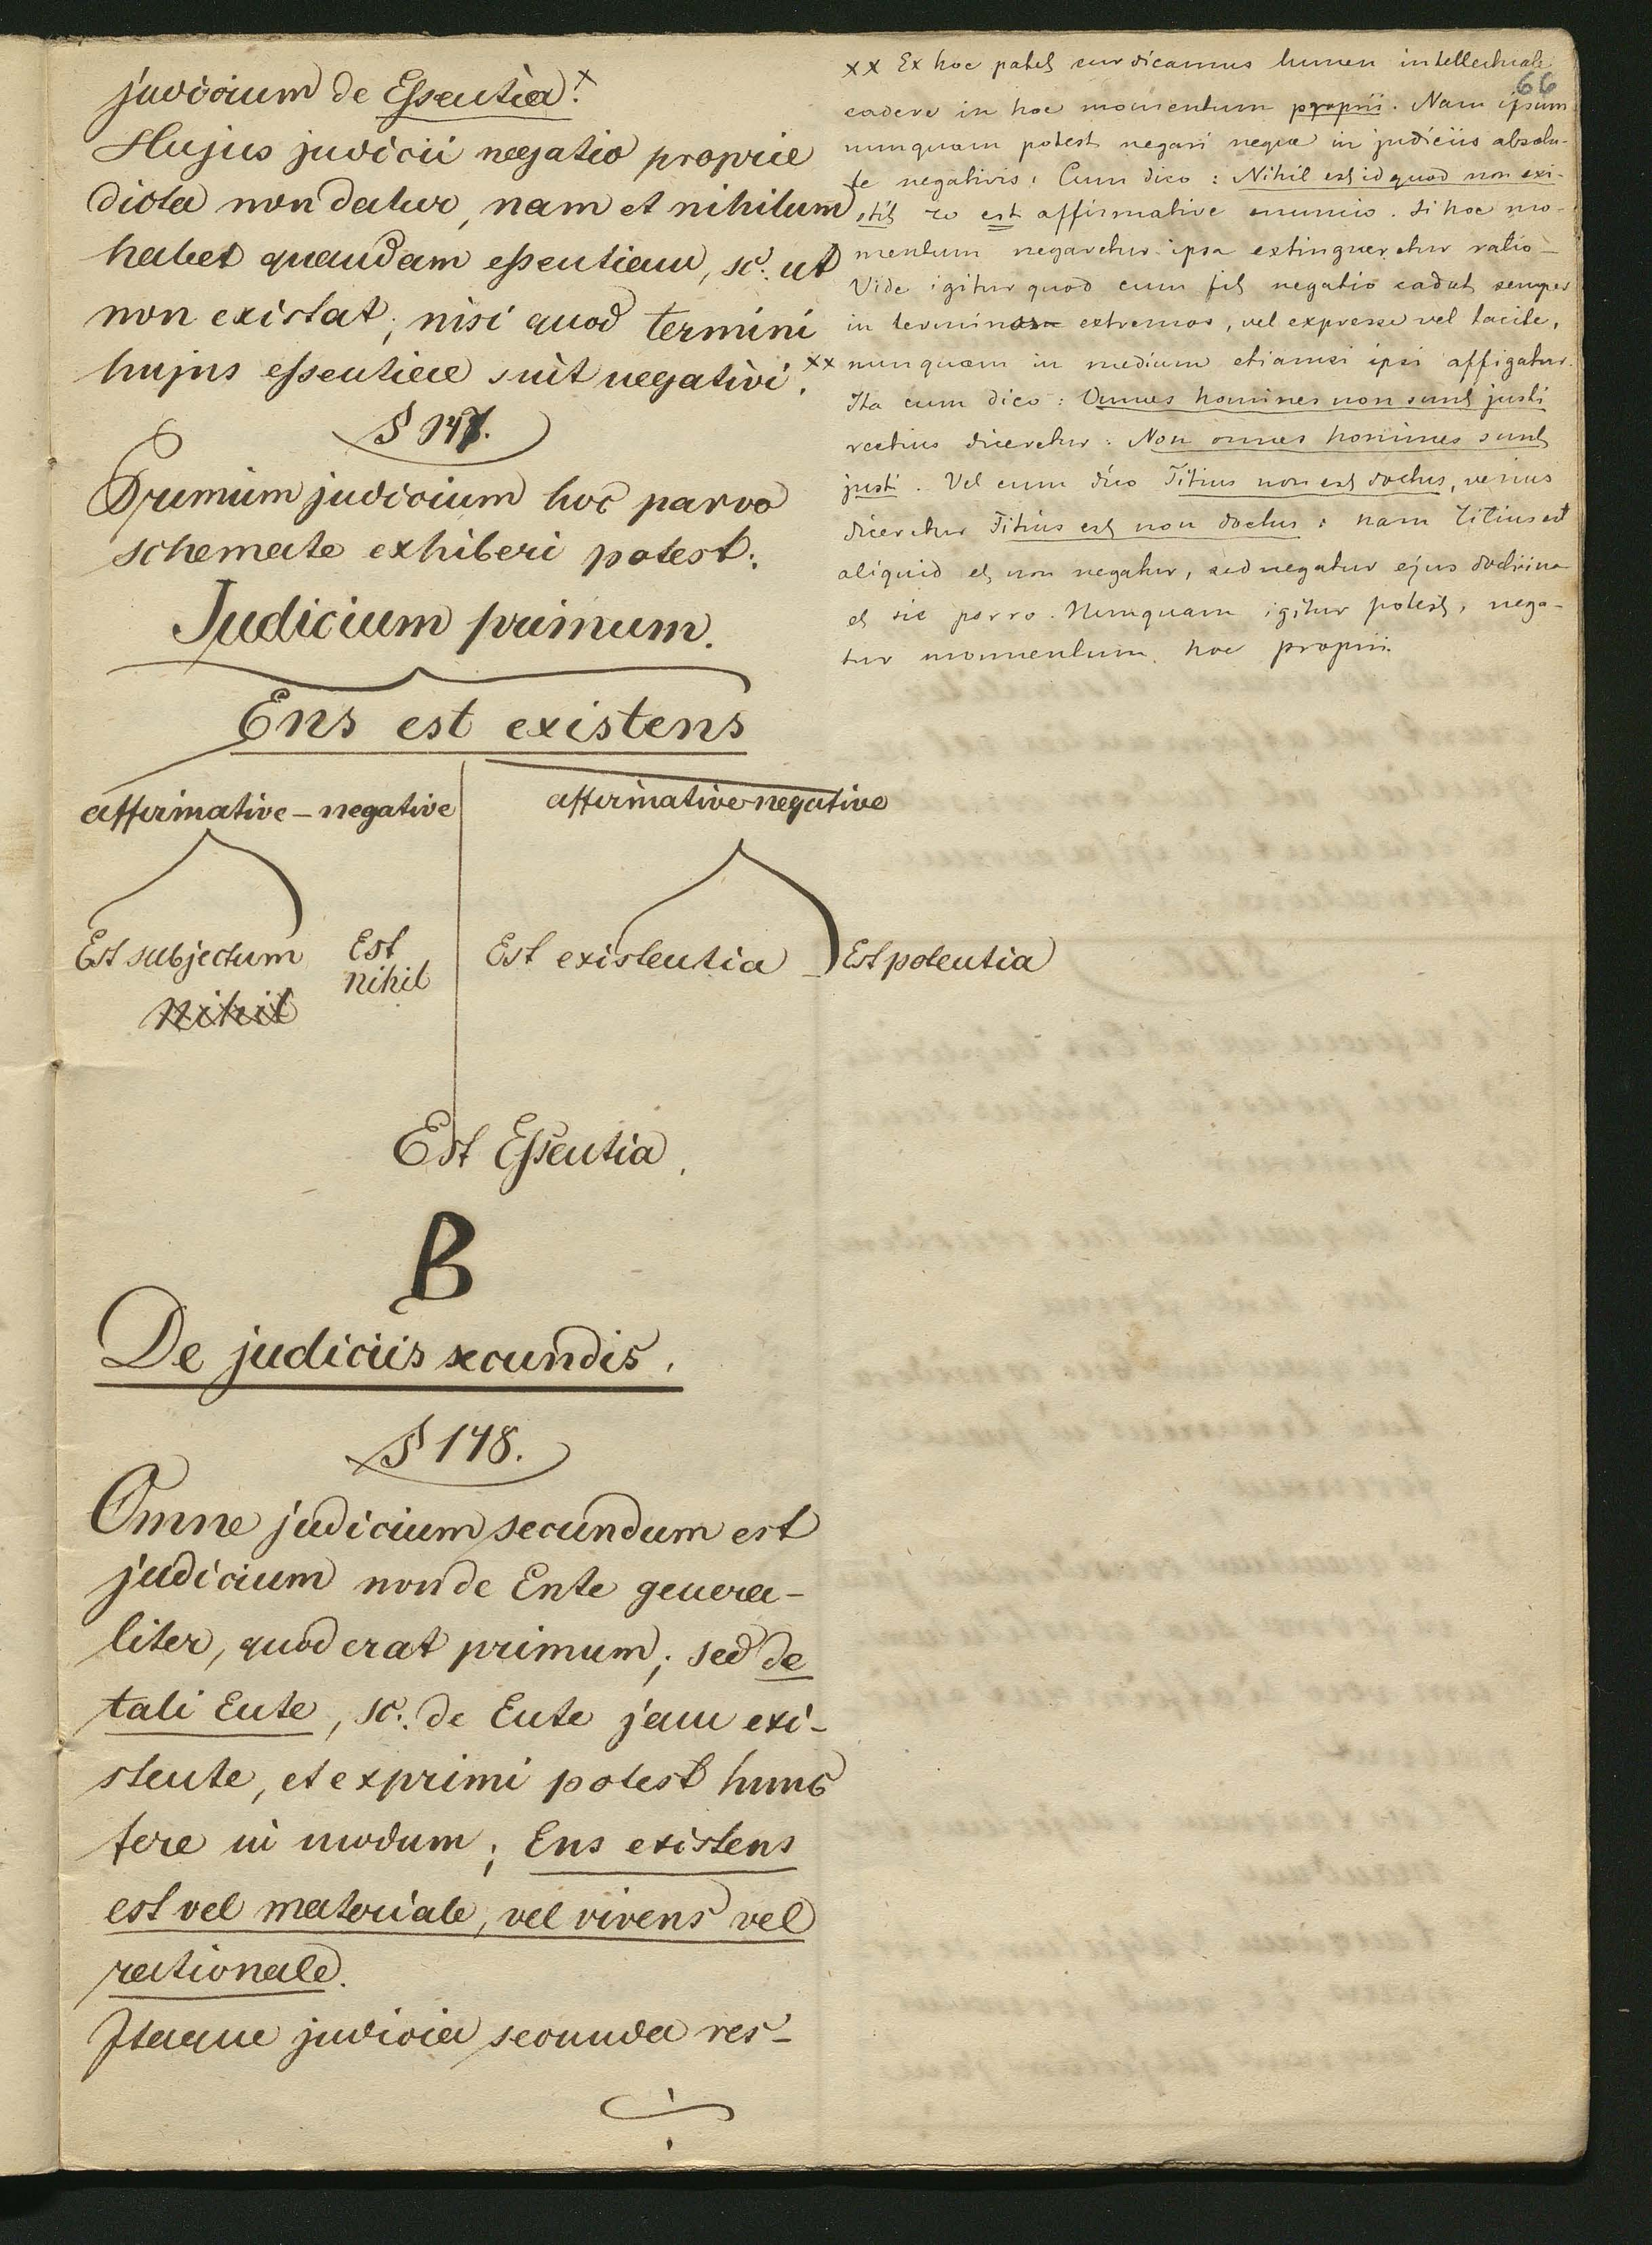 judicium de Essentia. x
Hujus judicii negatio proprie
dicta non datur, nam et nihilum
habet quandam essentiam, sc: ut
non existat; nisi quod termini
hujus essentiae sint negativi. xx
§ 147.
Primum judicium hoc parvo
schemate exhiberi potest:
Judicium primum.
Ens est existens
affirmative – negative
affirmative negative
Est subjectum
Est
nihil
Est existentia
Est potentia
Nihil
Est Essentia.
B
De judiciis secundis.
§ 148.
Omne judicium secundum est
judicium non de Ente genera-
liter, quod erat primum; sed de
tali Ente, sc: de Ente jam exi-
stente, et exprimi potest hunc
fere in modum; Ens existens
est vel materiale, vel vivens vel
rationale.
Itaque judicia secunda res-
66
xx Ex hoc patet cur dicamus lumen intellectuale
cadere in hoc momentum proprii. Nam ipsum
nunquam potest negari neque in judiciis absolu-
te negativis: Cum dico: Nihil est id quod non exi-
stit to est affirmative enuncio. Si hoc mo-
mentum negaretur ipsa extingueretur ratio –
Vide igitur quod cum fit negatio cadat semper
in terminos extremos, vel expresse vel tacite,
nunquam in medium etiamsi ipsi affigatur.
Ita cum dico: Omnes homines non sunt justi
rectius diceretur: Non omnes homines sunt
justi. Vel cum dico Titius non est doctus, verius
diceretur Titius est non doctus: nam Titius est
aliquid et non negatur, sed negatur ejus doctrina
et sic porro. Nunquam igitur potest, nega-
tur momentum hoc proprii.